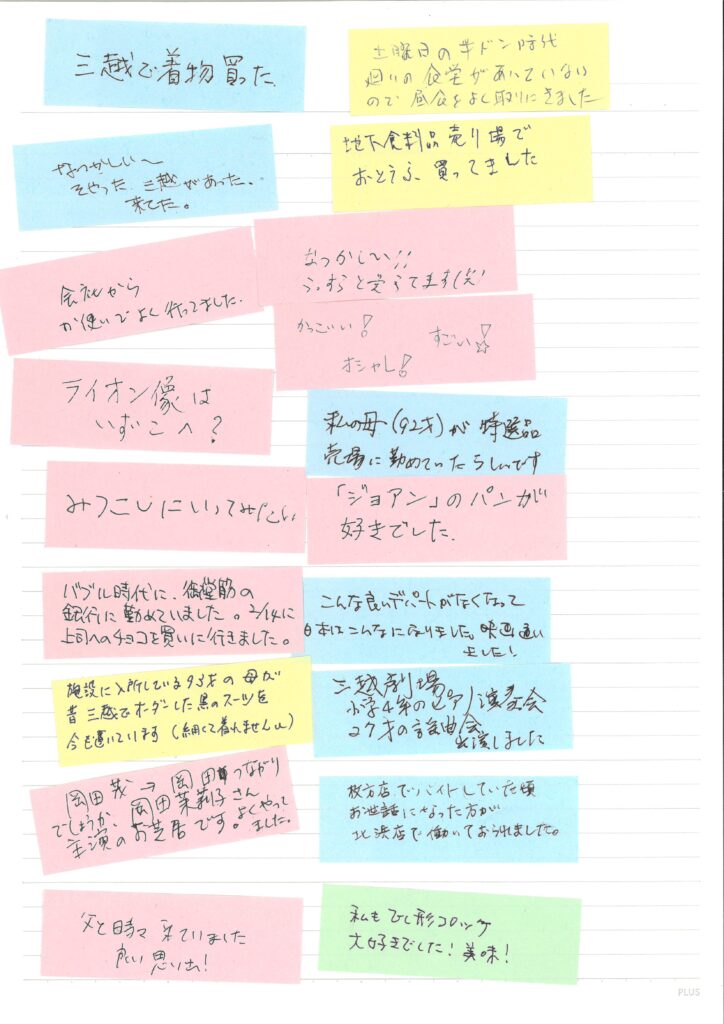 三越で着物買った
土曜日の半ドン時代
廻りの食堂があいていない
ので昼食をよく取りにきました
なつかしい〜
そやった 三越があった。
来てた。
地下食料品売り場で
おとうふ、買ってました
会社から
お使いでよく行ってました。
なつかしい!!
かっこいい!
すごい!
オシャレ!
ライオン像は
いずこへ?
私の母(92才)が特選品
売場に勤めていたらしいです
みつこしにいってみたい
「ジョアン」のパンが
好きでした。
バブル時代に、御堂筋の
銀行に勤めていました。2/14に
上司へのチョコを買いに行きました。
こんな良いデパートがなくなって
日本はこんなになりました。映画通い
ました!
施設に入所している93才の母が
昔三越でオーダーした黒のスーツを
今も置いています(細くて着れませんw)
三越劇場
小学4年のピアノ演奏会
27才の
出演しました
岡田茂→岡田つながり
でしょうか、岡田茉莉子さん
主演のお芝居です。よくやって
ました。
枚方店でバイトしていた頃
お世話になった方が
北浜店で働いておられました。
父と時々来ていました
良い思い出!
私もひし形コロッケ
大好きでした!美味!
PLUS